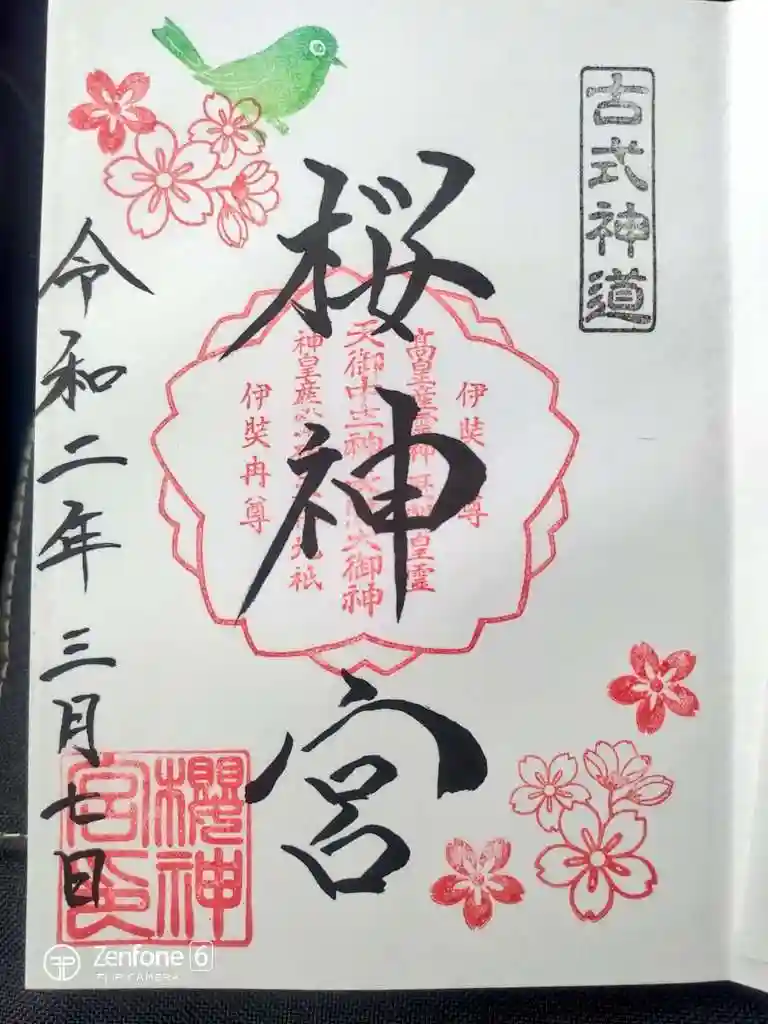 古式神道
桜神宮
伊奘
尊
高皇産霊神
皇霊
天御中主神
大御神
神皇産
祇
伊奘冉尊
令和二年三月七日
櫻神
宮印
Zenfone 6
FLIP CAMERA